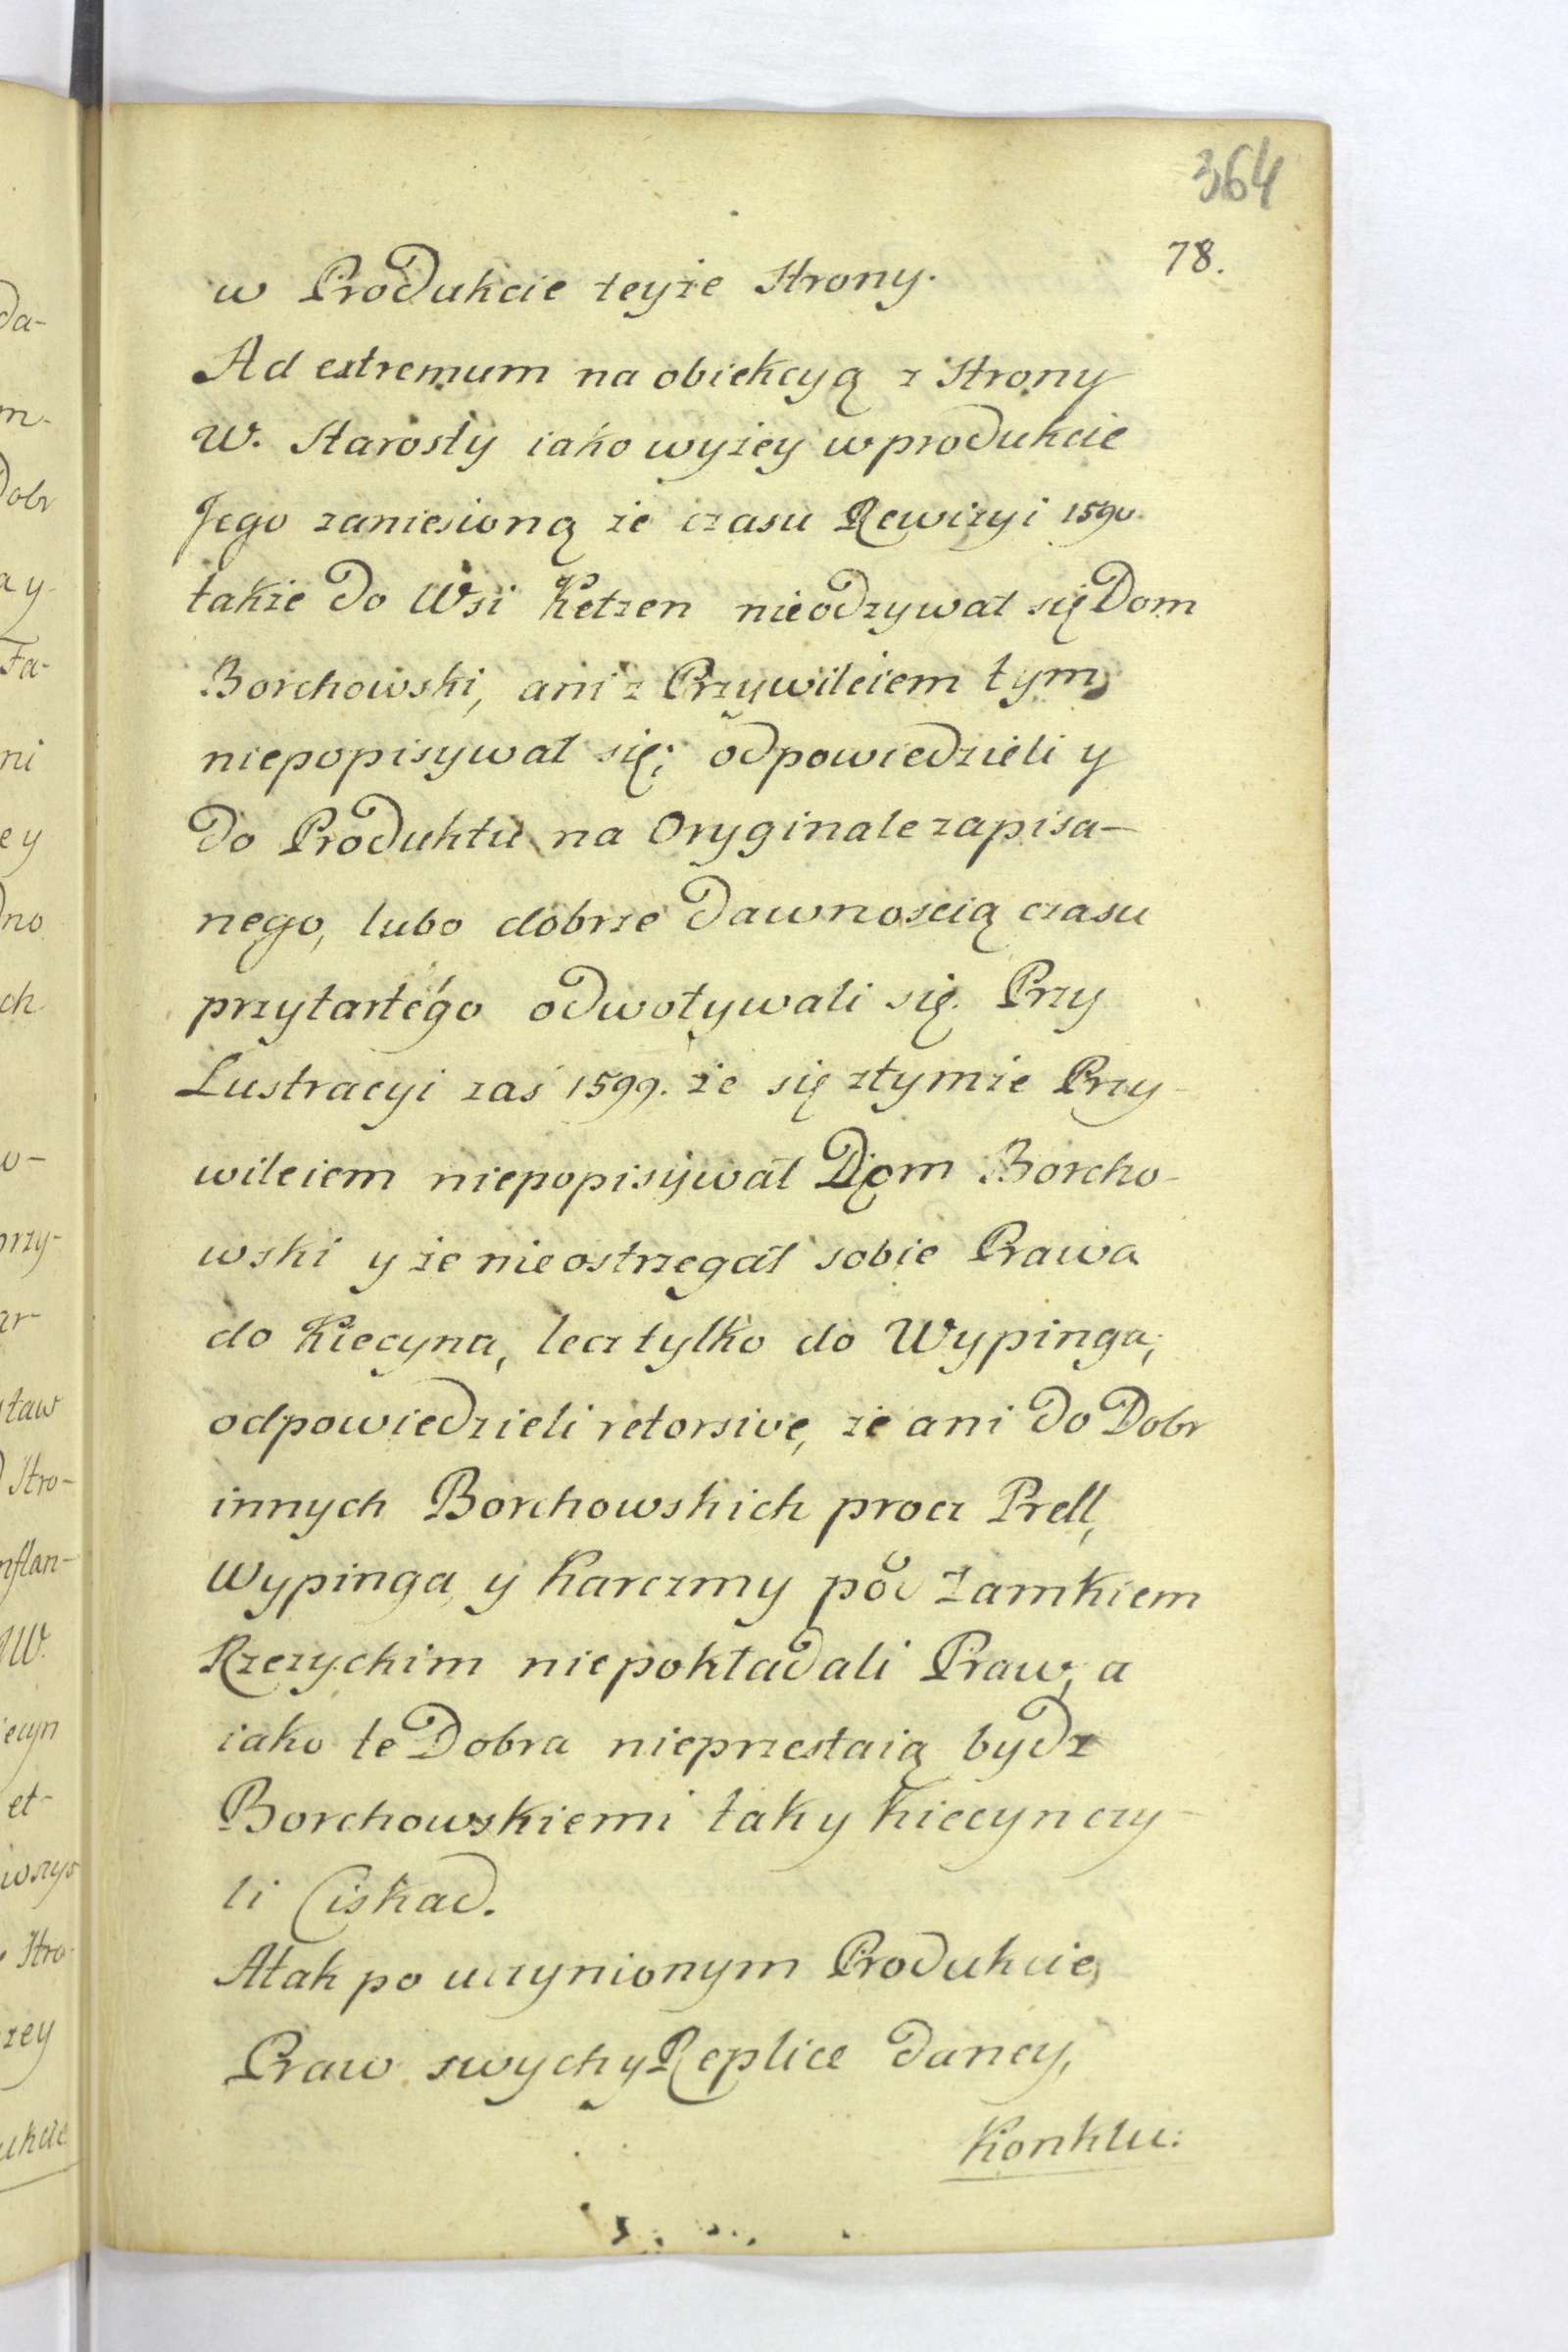 364
78.
w Produkcie teyże Strony.
Ad extremum na obiekcyą z Strony
W. Starosty iako wyżey w produkcie
Jego zaniesioną że czasu Rewizyi 1590.
także do Wsi Ketzen nieodzywał się Dom
Borchowski, ani z Przywileiem tym,
niepopisywał się; odpowiedzieli y
do Produktu na Oryginale zapisa-
nego, lubo dobrze dawnoscią czasu
przytartego odwoływali się. Przy
Lustracyi zaś 1599. że się ztymże Przy-
wileiem niepopisywał Dom Borcho-
wski y że nieostrzegał sobie Prawa
do Kiecyna, lecz tylko do Wypinga;
odpowiedzieli retorsive, że ani do Dobr
innych Borchowskich procz Prell,
Wypinga y Karczmy pod Zamkiem
Rzezyckim niepokładali Praw, a
iako te Dobra nieprzestaią bydz
Borchowskiemi tak y Kiecyn czy-
li Ciskad.
Atak po uczynionym Produkcie,
Praw swych y Replice daney,
Konklu:
da-
m.
Dobr
a y
Fa-
ni
ey
dno
ch
o-
przy-
ar-
staw
Stro-
nflan-
W.
iecyn
et-
wszys
Stro-
zey
ukcie